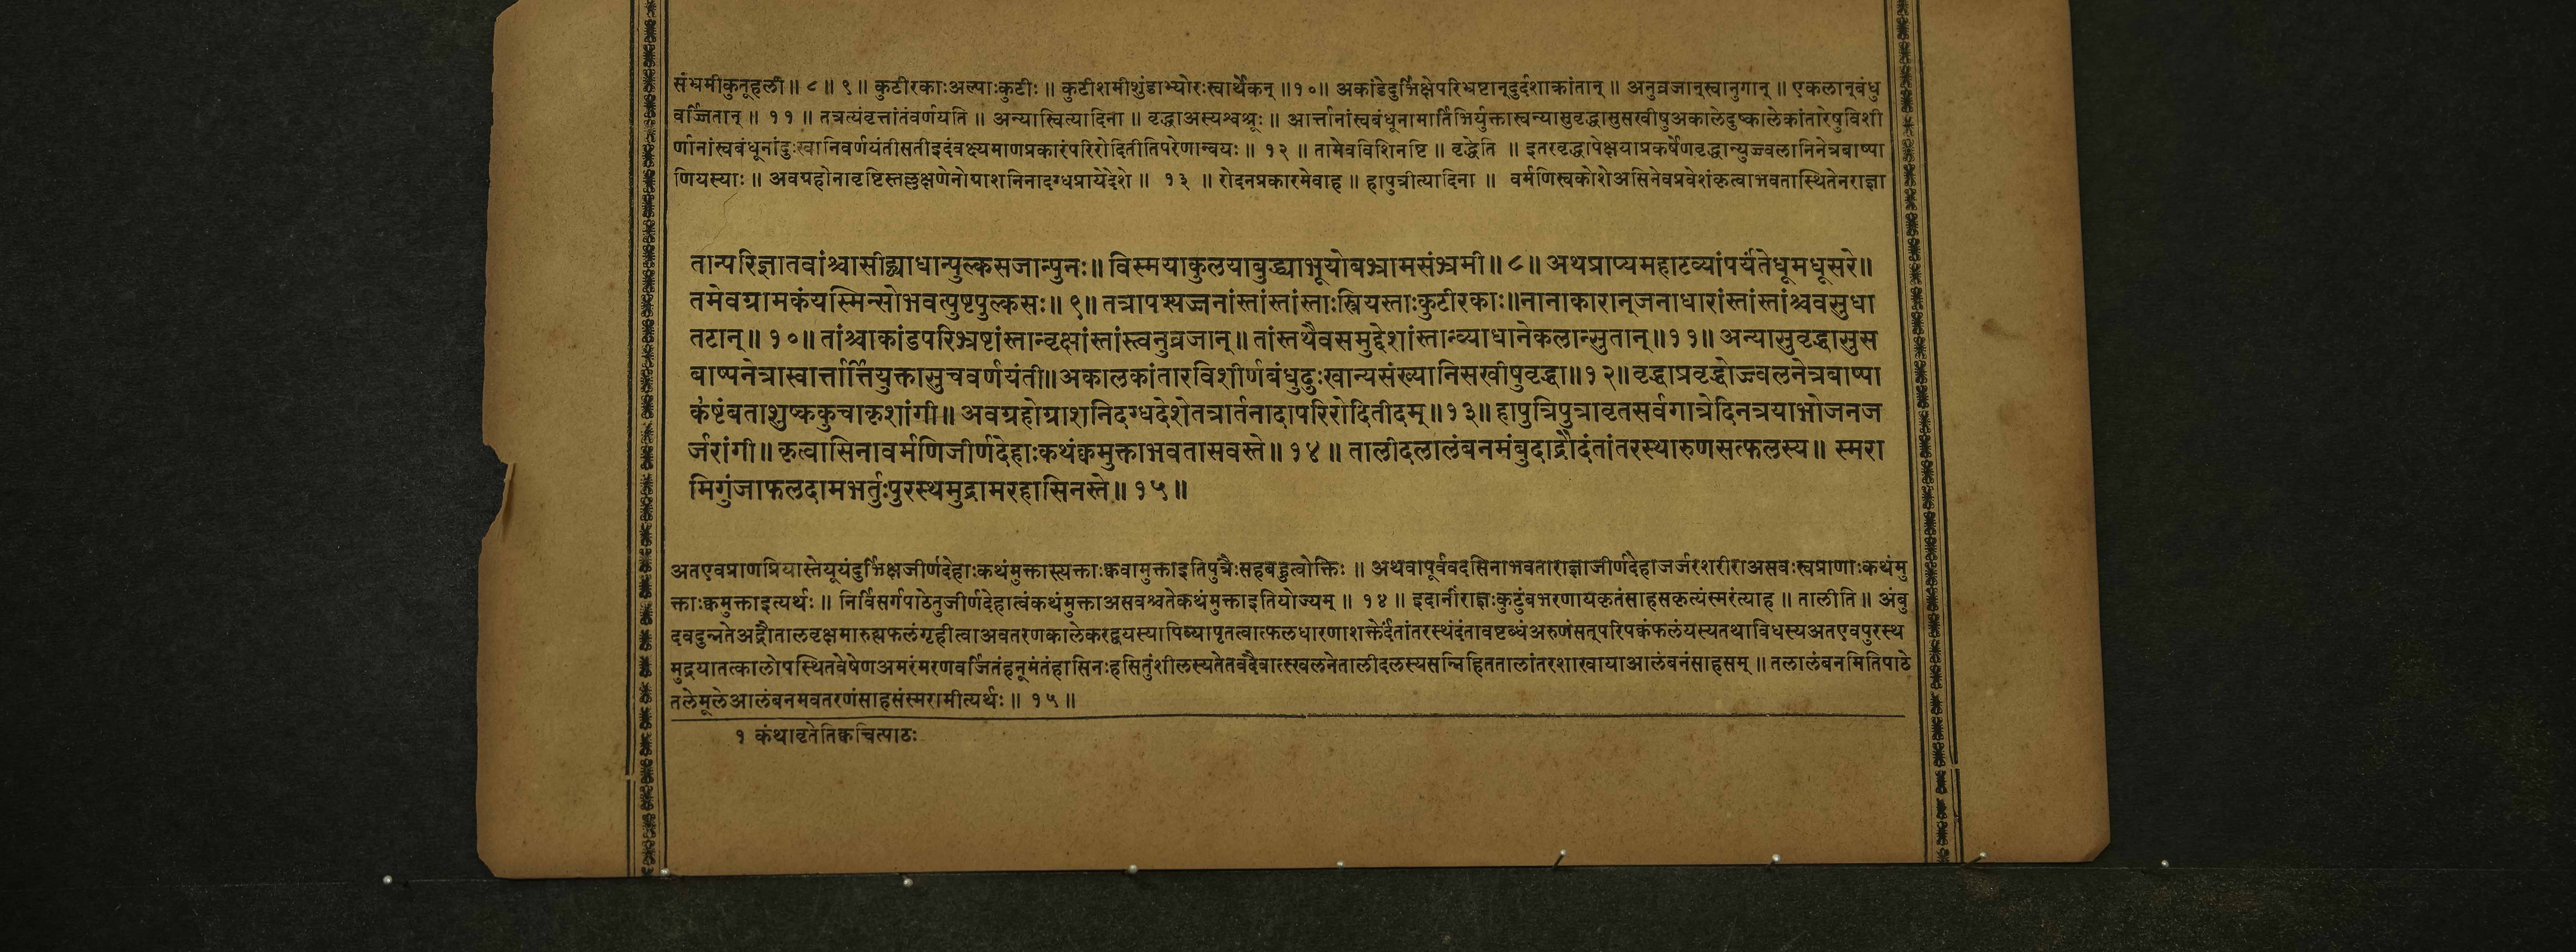 संभ्रमीकुतूहली ॥ ८ ॥ ९ ॥ कुटीरकाःअल्पाःकुटीः ॥ कुटीशमीशुंडाभ्योरःस्वार्थेकन् ॥१०॥ अकांडेदुर्भिक्षेपरिभ्रष्टान्दुर्दशाक्रांतान् ॥ अनुव्रजान्स्वानुगान् ॥ एकलान्बंधु
वर्ज्जितान् ॥ ११ ॥ तत्रत्यंवृत्तांतंवर्णयति ॥ अन्यास्वित्यादिना ॥ वृद्धाअस्यश्वश्रूः ॥ आर्त्तानांस्वबंधूनामार्तिभिर्युक्तास्वन्यासुवृद्धासुसखीषुअकालेदुष्कालेकांतारेषुविशी
र्णानांस्वबंधूनांदुःखानिवर्णयंतीसतीइदंवक्ष्यमाणप्रकारंपरिरोदितीतिपरेणान्वयः ॥ १२ ॥ तामेवविशिनष्टि ॥ वृद्धेति ॥ इतरवृद्धापेक्षयाप्रकर्षेणवृद्धान्युज्ज्वलानिनेत्रबाष्पा
णियस्याः ॥ अवग्रहोनावृष्टिस्तल्लक्षणेनोग्राशनिनादग्धप्रायेदेशे ॥ १३ ॥ रोदनप्रकारमेवाह ॥ हापुत्रीत्यादिना ॥ वर्मणिस्वकोशेअसिनेवप्रवेशंकृत्वाभवतास्थितेनराज्ञा
तान्परिज्ञातवांश्चासीद्व्याधान्पुल्कसजान्पुनः॥ विस्मयाकुलयाबुद्ध्याभूयोबभ्रामसंभ्रमी॥ ८॥ अथप्राप्यमहाटव्यांपर्यंतेधूमधूसरे॥
तमेवग्रामकंयस्मिन्सोभवत्पुष्टपुल्कसः॥ ९॥ तत्रापश्यज्जनांस्तांस्तांस्ताःस्त्रियस्ताःकुटीरकाः॥नानाकारान्जनाधारांस्तांस्तांश्चवसुधा
तटान्॥ १०॥ तांश्चाकांडपरिभ्रष्टांस्तान्वृक्षांस्तांस्त्वनुव्रजान्॥ तांस्तथैवसमुद्देशांस्तान्व्याधानेकलान्सुतान्॥११॥ अन्यासुवृद्धासुस
बाष्पनेत्रास्वार्त्तार्त्तियुक्तासुचवर्णयंती॥अकालकांतारविशीर्णबंधुदुःखान्यसंख्यानिसखीषुवृद्धा॥१२॥वृद्धाप्रवृद्धोज्ज्वलनेत्रबाष्पा
कष्टंबताशुष्ककुचाकृशांगी॥ अवग्रहोग्राशनिदग्धदेशेतत्रार्तनादापरिरोदितीदम्॥१३॥हापुत्रिपुत्रावृतसर्वगात्रेदिनत्रयाभोजनज
र्जरांगी॥ कृत्वासिनावर्मणिजीर्णदेहाःकथंक्वमुक्ताभवतासवस्ते॥ १४॥ तालीदलालंबनमंबुदाद्रौदंतांतरस्थारुणसत्फलस्य॥ स्मरा
मिगुंजाफलदामभर्तुःपुरस्थमुद्रामरहासिनस्ते॥ १५॥
अतएवप्राणप्रियास्तेयूयंदुर्भिक्षजीर्णदेहाःकथंमुक्तास्त्यक्ताःक्ववामुक्ताइतिपुत्रैःसहबहुत्वोक्तिः ॥ अथवापूर्ववदसिनाभवताराज्ञाजीर्णदेहाजर्जरशरीराअसवःस्वप्राणाःकथंमु
क्ताःक्वमुक्ताइत्यर्थः ॥ निर्विसर्गपाठेतुजीर्णदेहात्वंकथंमुक्ताअसवश्चतेकथंमुक्ताइतियोज्यम् ॥ १४ ॥ इदानींराज्ञःकुटुंबभरणायकृतंसाहसकृत्यंस्मरंत्याह ॥ तालीति ॥ अंबु
दवदुन्नतेअद्रौतालवृक्षमारुह्यफलंगृहीत्वाअवतरणकालेकरद्वयस्यापिव्यापृतत्वात्फलधारणाशक्तेर्दंतांतरस्थंदंतावष्टब्धंअरुणंसत्परिपक्वंफलंयस्यतथाविधस्यअतएवपुरस्थ
मुद्रयातत्कालोपस्थितवेषेणअमरंमरणवर्जितंहनूमंतंहासिनःहसितुंशीलस्यतेतवदैवात्स्खलनेतालीदलस्यसन्निहिततालांतरशाखायाआलंबनंसाहसम् ॥ तलालंबनमितिपाठे
तलेमूलेआलंबनमवतरणंसाहसंस्मरामीत्यर्थः ॥ १५ ॥
१ कंथावृतेतिक्वचित्पाठः